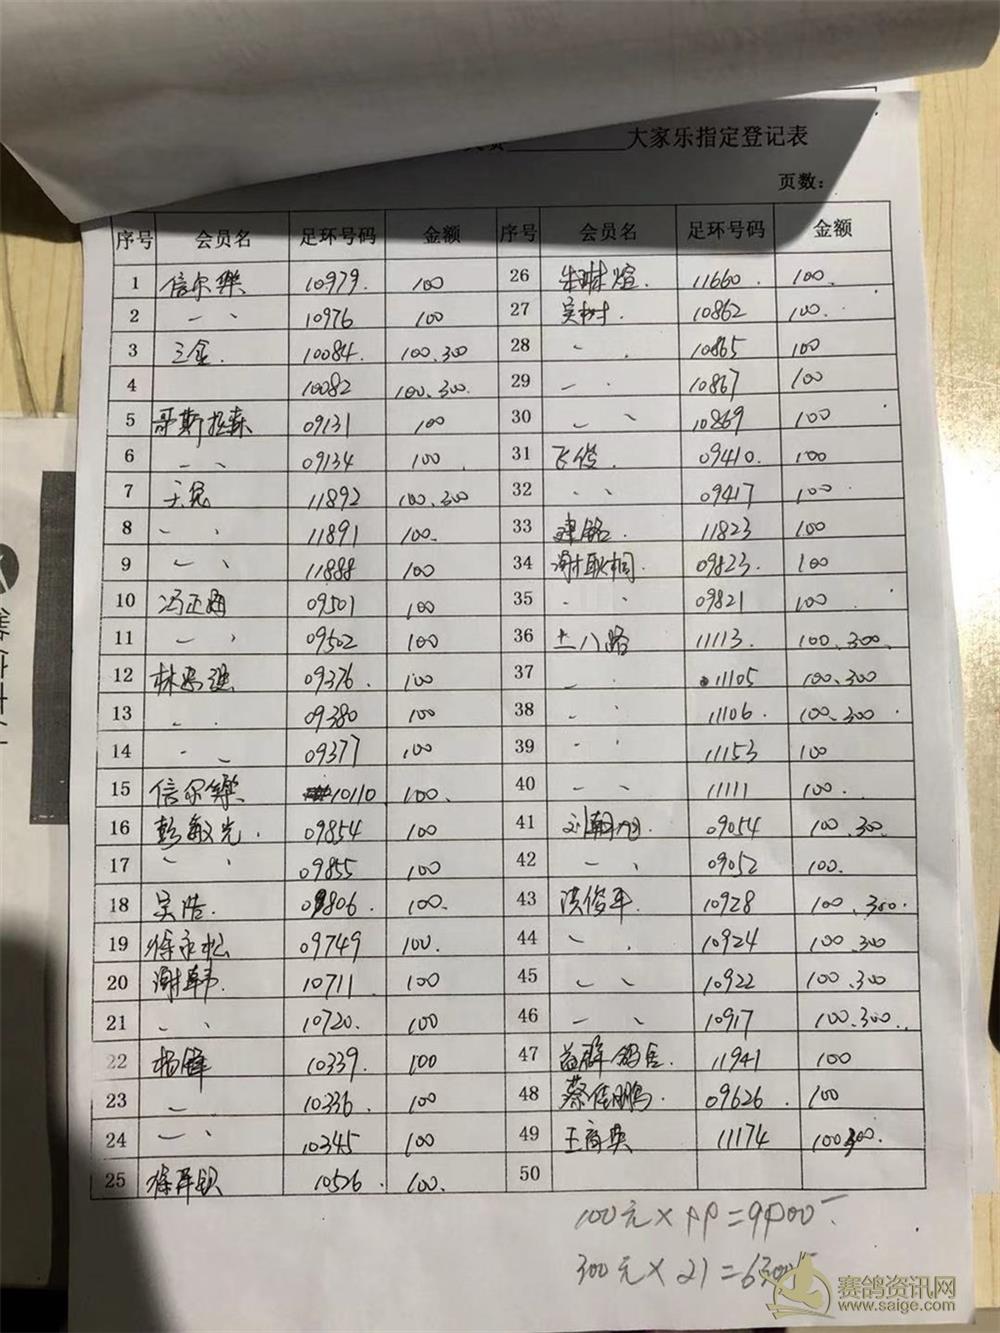 大家乐指定登记表
页数：
序号 会员名 足环号码 金额 序号 会员名 足环号码 金额
1 信尔樂 10979. 100 26 朱琳煊. 11660 100.
2 〃 10976 100 27 吴树. 10862 100.
3 三金. 10084. 100.300 28 〃 10865 100
4 10082 100.300. 29 〃 10867 100
5 哥斯拉森 09131 100 30 〃 10869 100
6 〃 09134 100. 31 飞俊. 09410. 100
7 天冠 11892 100.300 32 〃 09417 100
8 〃 11891 100. 33 建铭. 11823 100
9 〃 11888 100 34 谢耿桐. 09823. 100
10 冯正 09501 100 35 〃 09821 100.
11 〃 09502 100 36 土八路 11113. 100.300.
12 林 09376. 100 37 〃 11105 100.300
13 〃 09380 100 38 〃 11106. 100.300.
14 〃 09377 100 39 〃 11153 100
15 信尔樂 10110. 100. 40 〃 11111 100.
16 彭敏光. 09854 100 41 刘朝 09054 100.30
17 〃 09855 100 42 〃 09052 100.
18 吴浩. 09806. 100. 43 洪俊平 10928 100.300.
19 徐永松 09749 100. 44 〃 10924 100.30
20 谢韩. 10711. 100 45 〃 10922 100.300
21 〃 10720. 100 46 〃 10917 100.300..
22 杨锋 10339. 100 47 益群鸽舍. 11941 100
23 〃 10336. 100 48 蔡佳鹏. 09626. 100
24 〃 10345 100 49 王商英 11174 100300.
25 徐泽钡 10526. 100. 50
100元×
300元×21=6300
赛鸽资讯网
www.saige.com